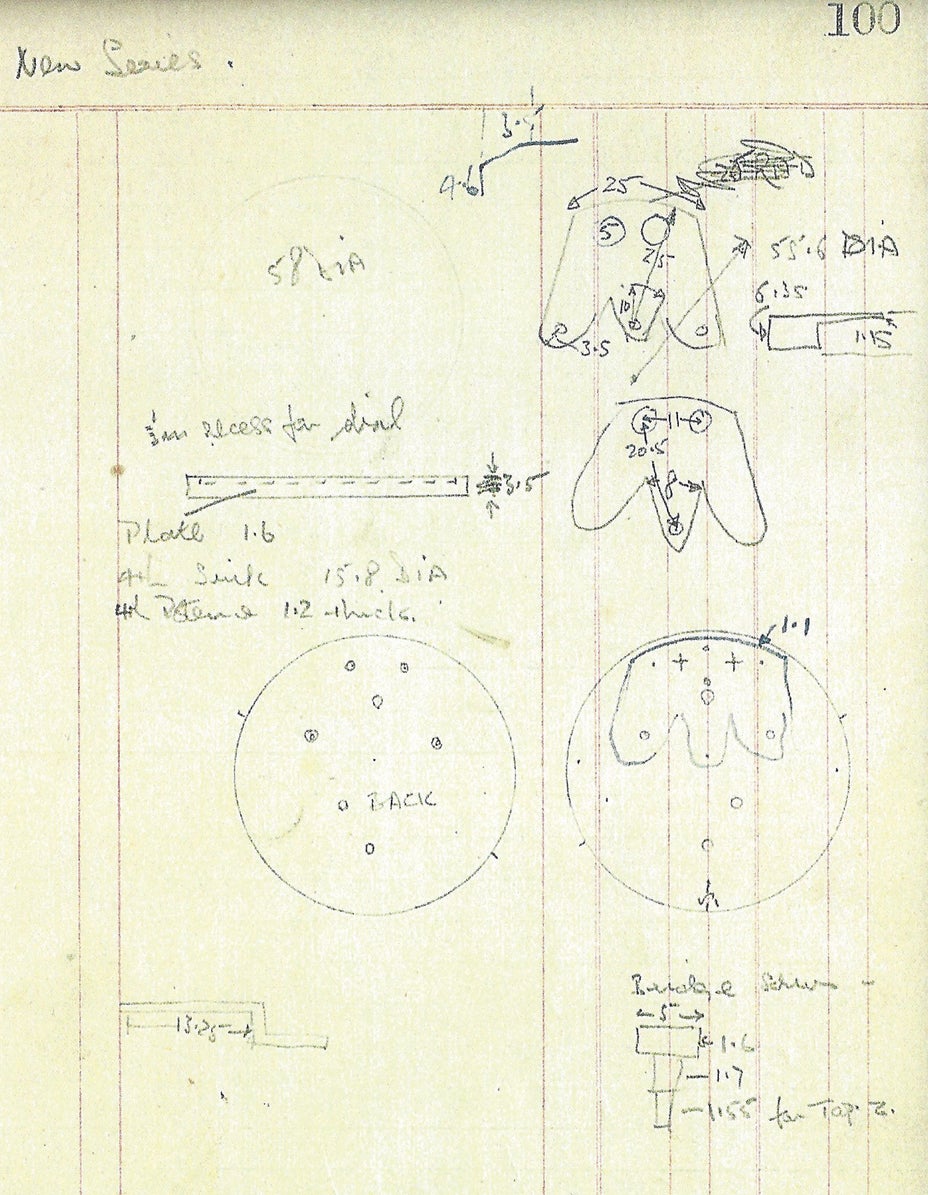 100
New Series.
3.5
4.6
25
5
25
55.6 DIA
58 DIA
6.35
10
3.5
1.15
recess for dial
11
20.5
8
3.5
Plate 1.6
Sink 15.8 DIA
1.2 thick.
1.1
BACK
Bridge Screws -
5
13.25
1.6
1.7
1.55 for Tap 2.